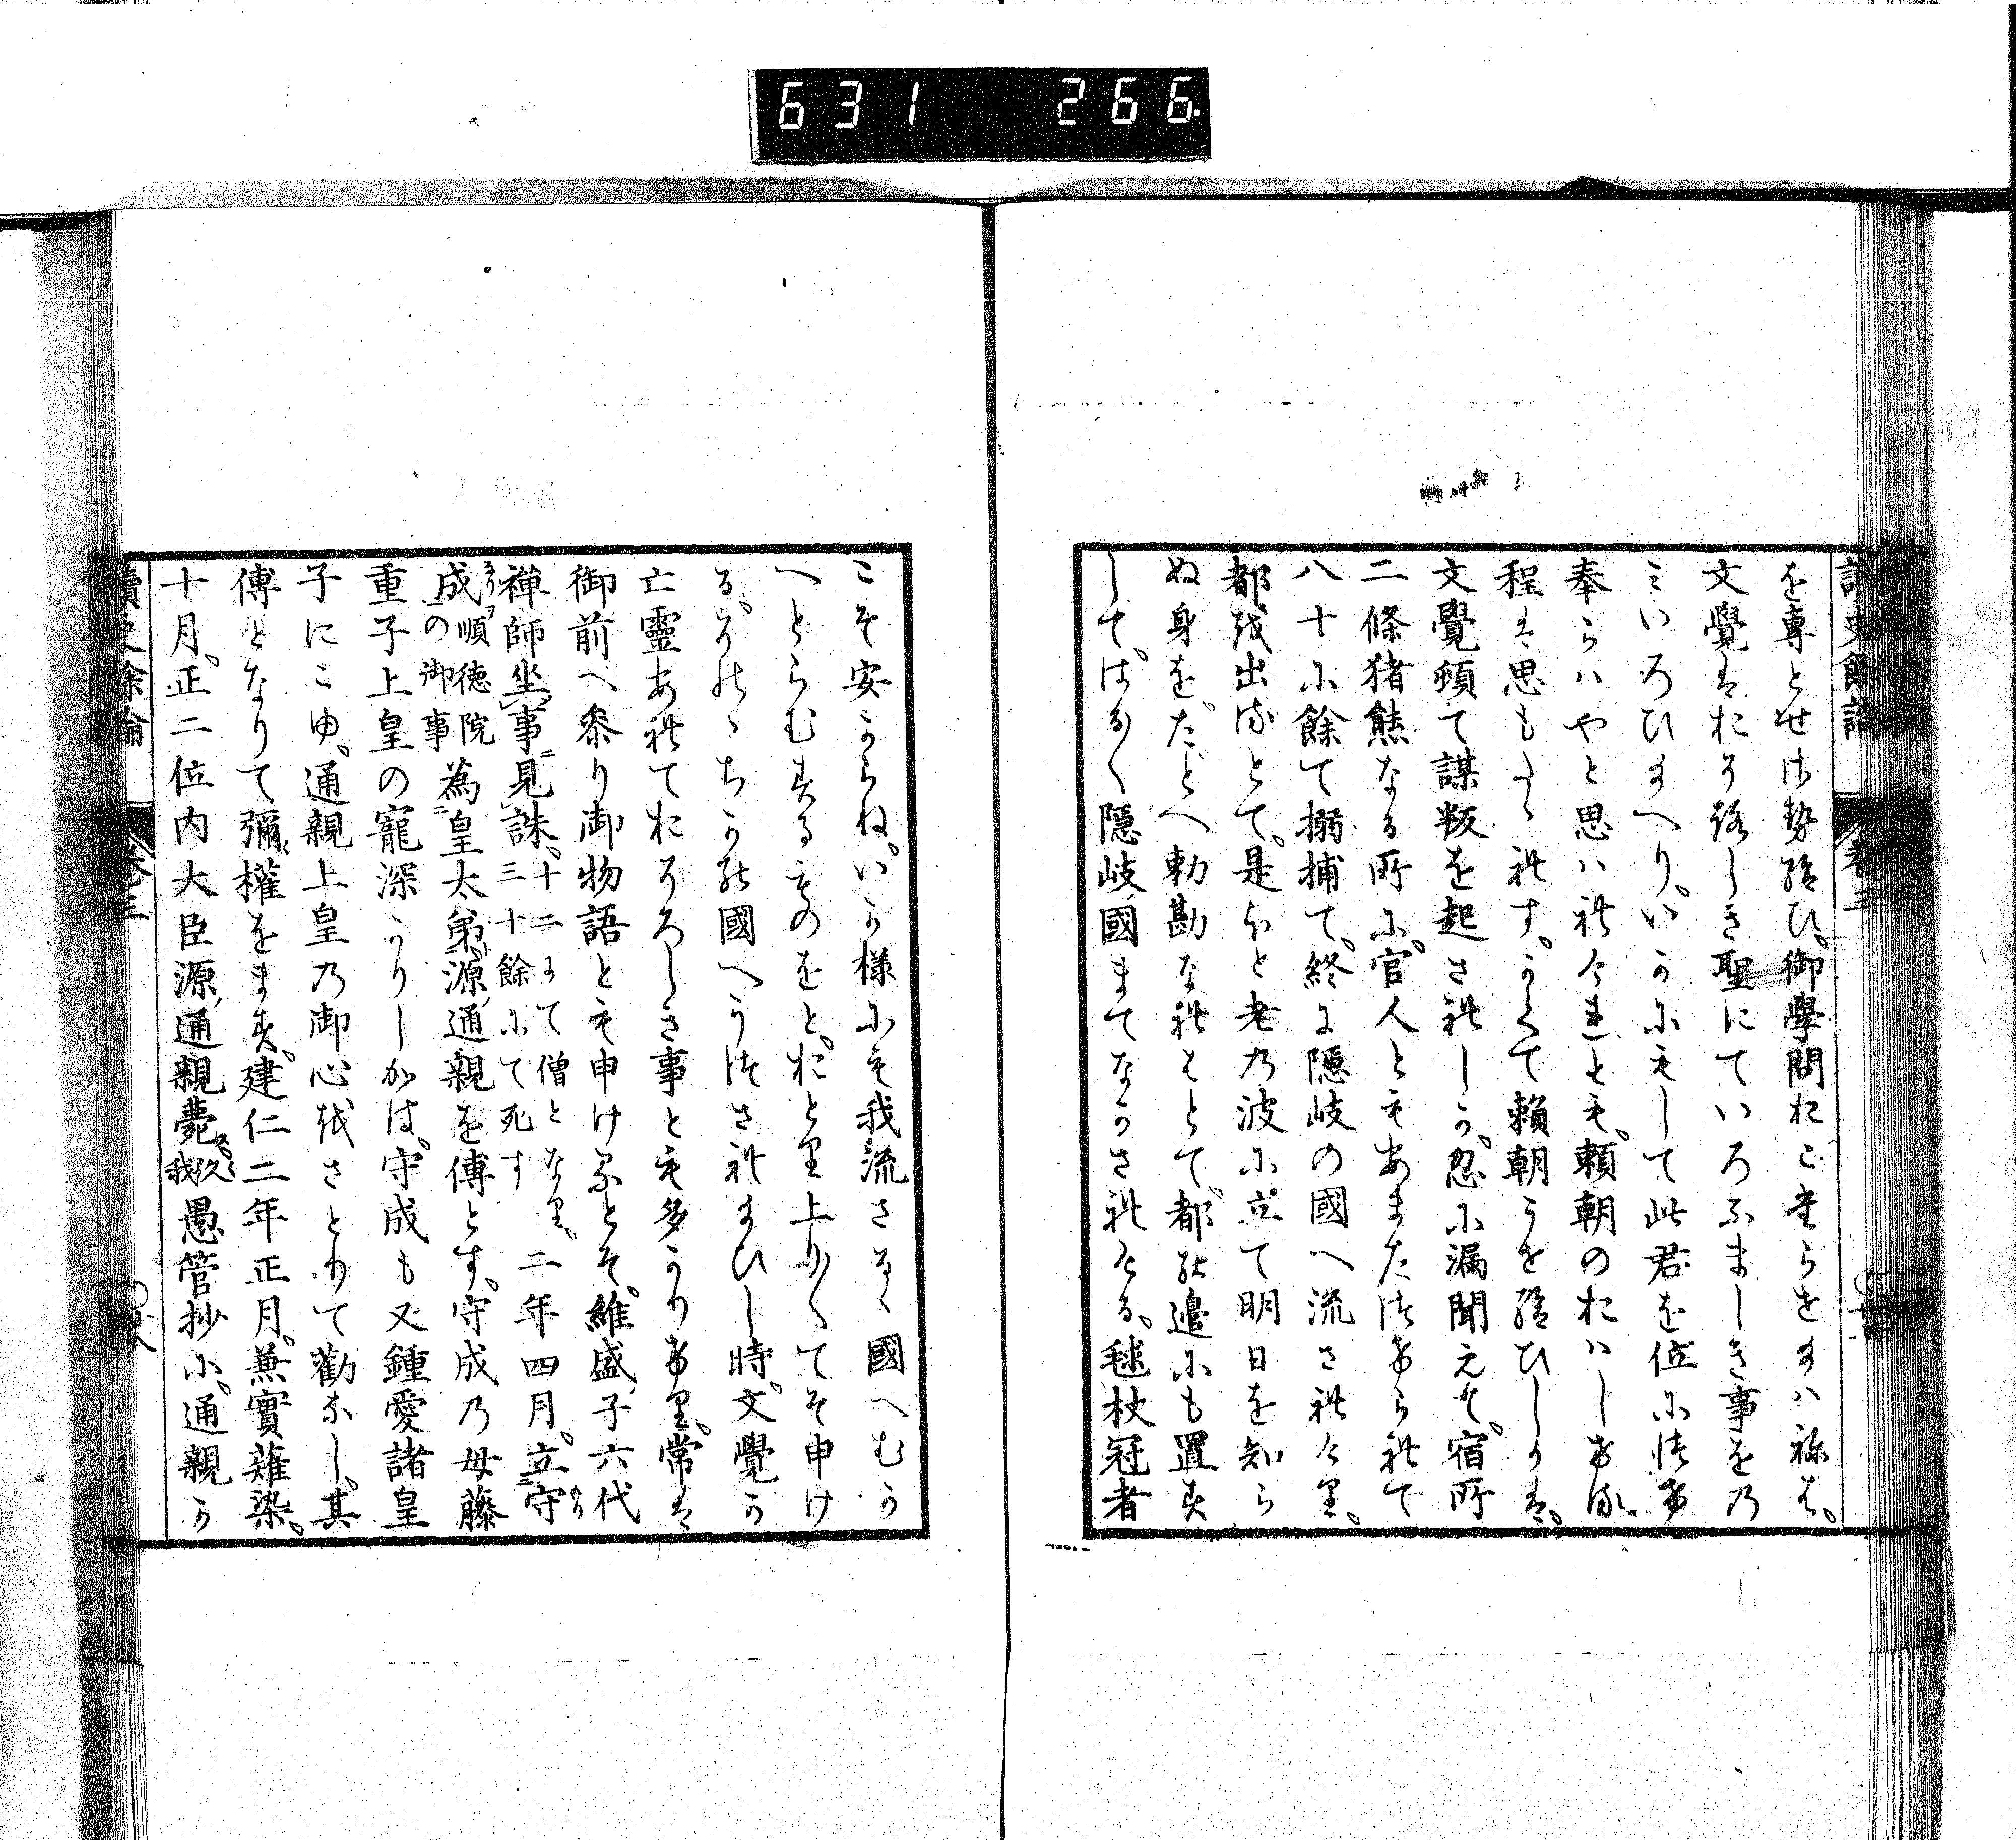 631 266
を專とせさせ給ひ。御學問おこたらせ玉ハねは。
文覺はおそろしき聖にていろふましき事をの
ミいろひ玉へり。いかにもして此君を位に活け
奉らハやと思ハれけれとも。賴朝のおハしける
程は思もたゝれす。かくて賴朝うせ給ひしかは。
文覺頓て謀叛を起されしか。忽に漏聞えて。宿所
二條猪熊なる所に。官人ともあまたつけられて
八十に餘て搦捕て。終に隠岐の國へ流されけり。
都を出るとて。是ほと老の波に立て明日を知ら
ぬ身を。たとへ勅勘なれはとて。都の邊にも置す
して。はる〱隠岐國まてなかされける。毬杖冠者
こそ安からね。いか樣にも我流さるゝ國へむか
へとらむするものをと。おとり上り〱てそ申け
る。かのゝちかの國へうつされ玉ひし時。文覺か
亡靈あれておそろしき事とも多かりけり。常は
御前へ參り御物語とも申けるとそ。維盛子六代
禪師坐事見誅。十二にて僧となり。三十餘にて死す 二年四月。立守
成順徳院の御事為皇太弟。源通親を傅とす。守成の母藤
重子上皇の寵深かりしかは。守成も又鍾愛諸皇
子にこゆ。通親上皇の御心をさとりて勸なし。其
傅となりて彌權をます。建仁二年正月。兼實薙染。
十月。正二位内大臣源通親薨久我愚管抄に。通親か
讀史餘論 卷三